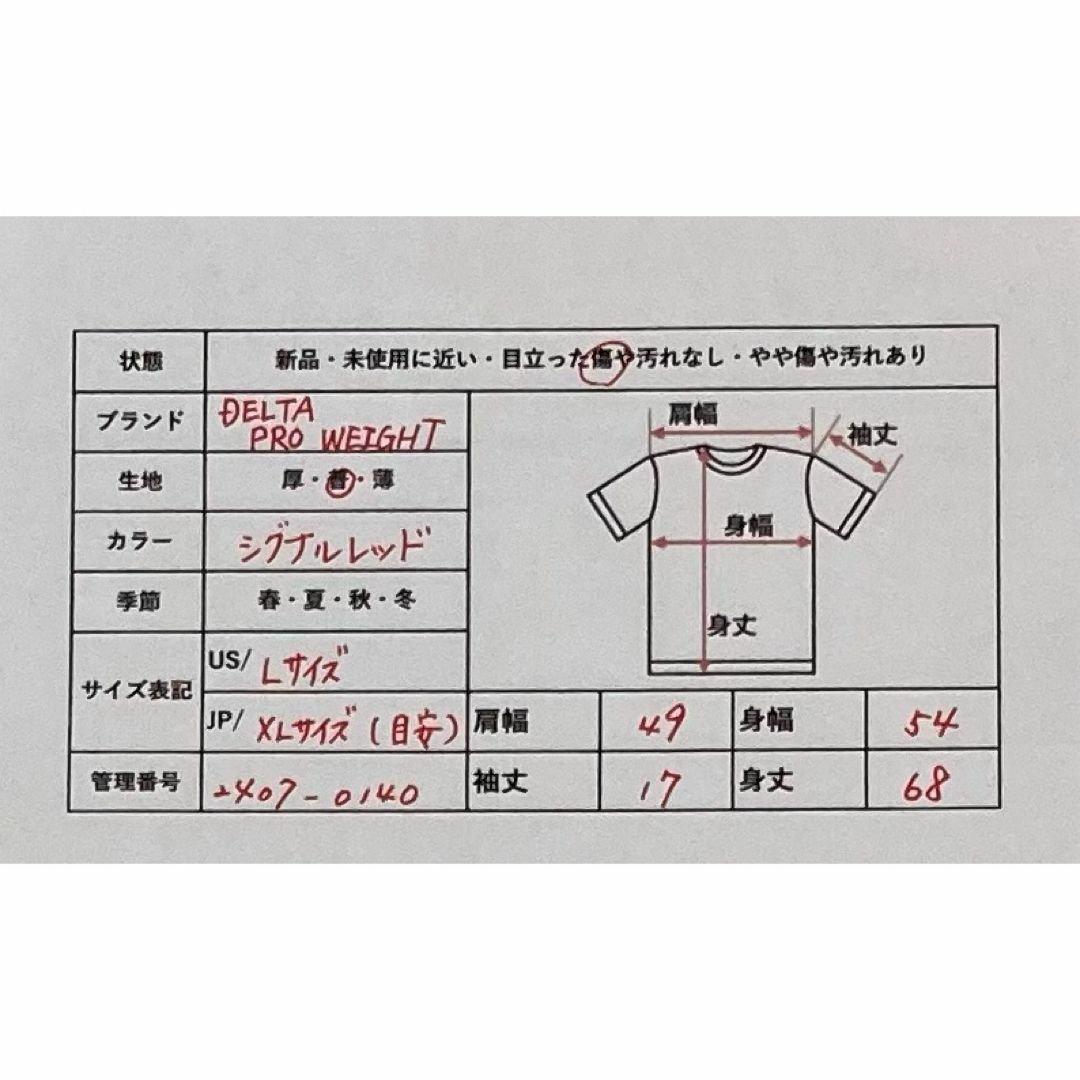 状態 新品・未使用に近い・目立った傷や汚れなし・やや傷や汚れあり
ブランド DELTA
PRO WEIGHT
生地 厚・普・薄
カラー シグナルレッド
季節 春・夏・秋・冬
サイズ表記 US/ Lサイズ
JP/ XLサイズ(目安)
管理番号 2407-0140
肩幅
袖丈
身幅
身丈
肩幅 49 身幅 54
袖丈 17 身丈 68